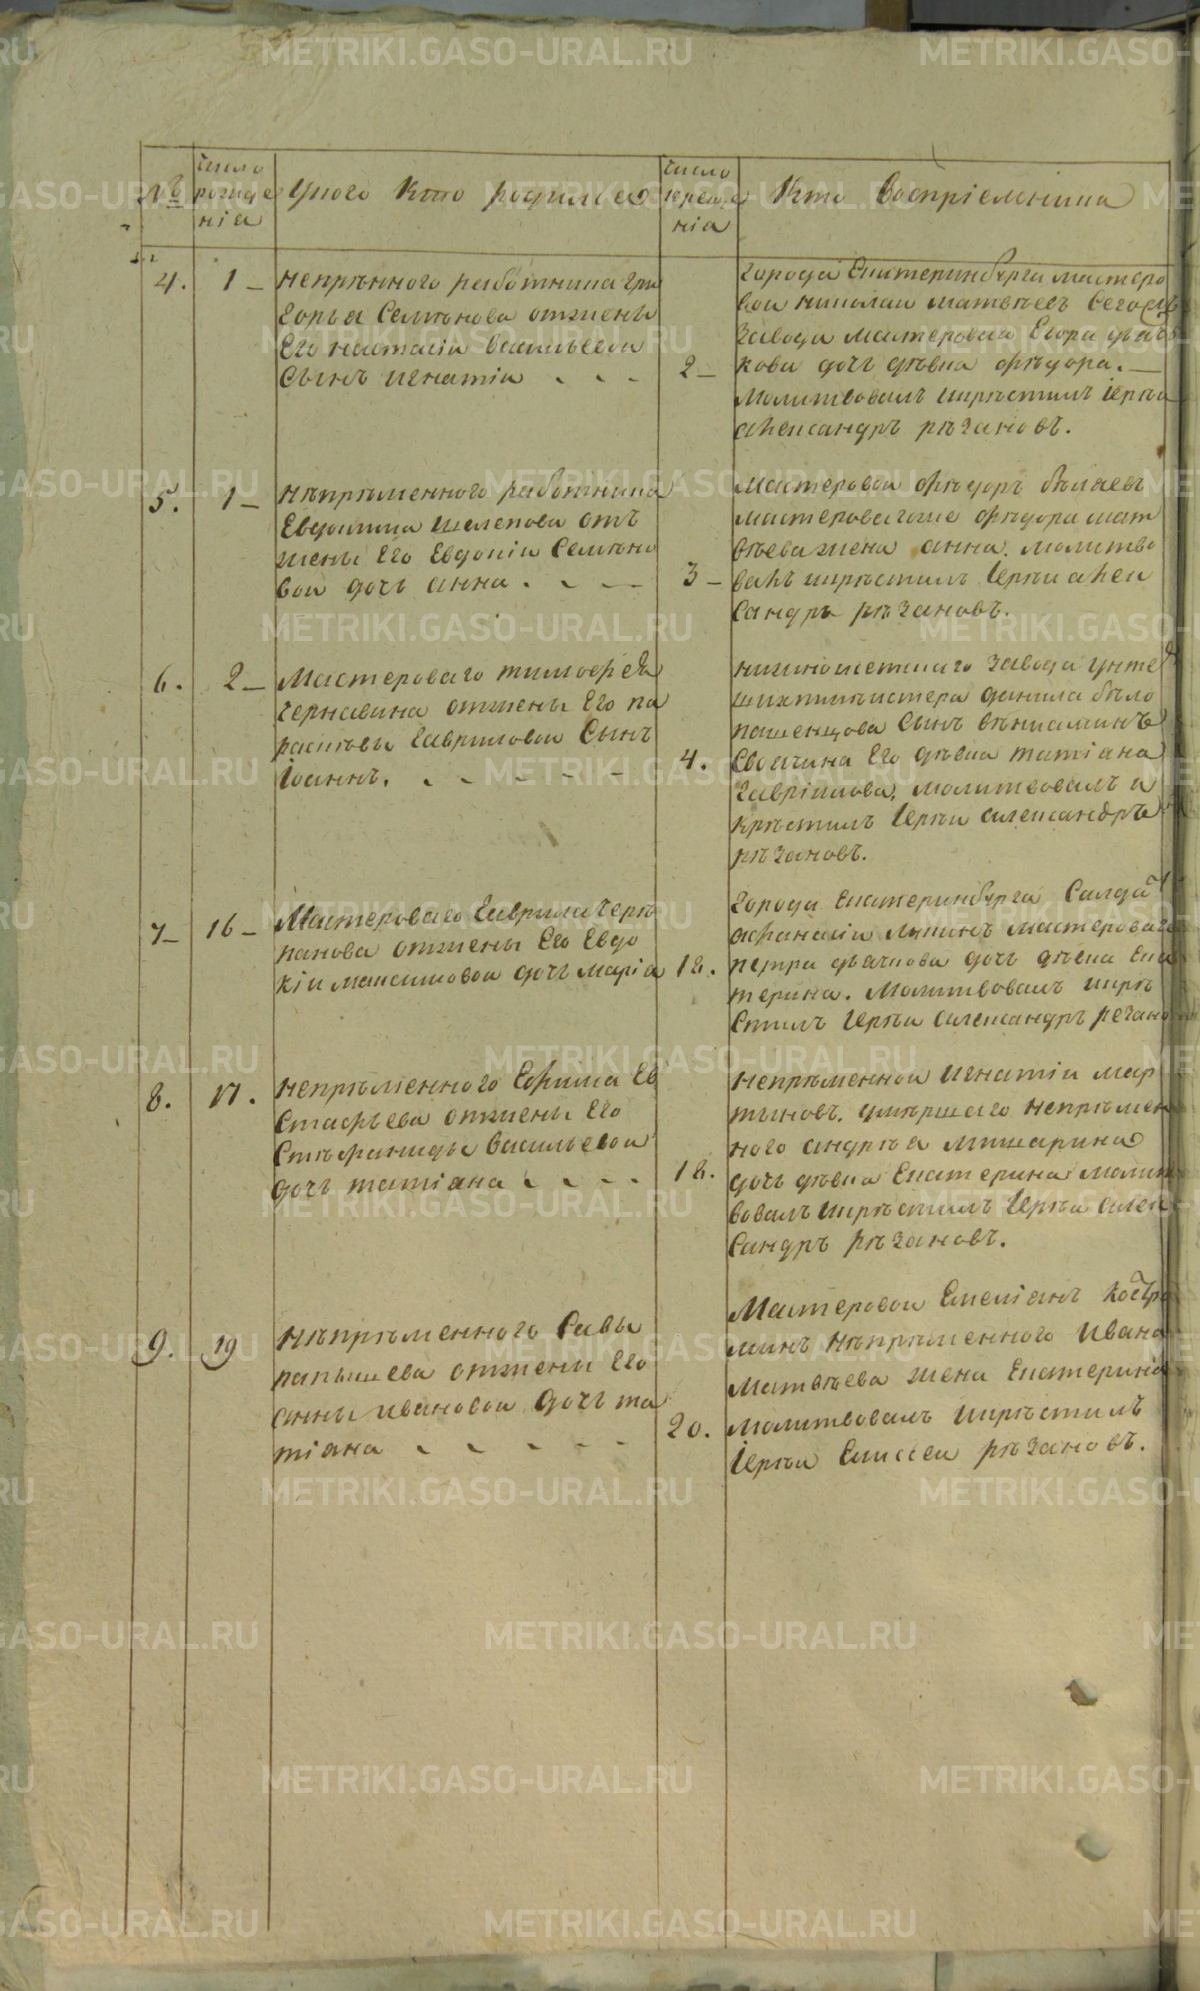 №
число рожде нія
У кого кто родился
число креще нія
Кто воспріемники
4. 1 —
непрѣнного работника гри
горья Семѣнова отжены
Его настасіи васильевои
Сынъ игнатіи
2 —
города Екатеринбурга мастеро
вои николаи матвѣевъ Сегосъ
завода мастероваго Егора
кова дочь дѣвка фѣдора. —
Молитвовалъ икрѣстилъ Іерѣи
александръ рѣзановъ.
5. 1 —
нѣпрѣменного работника
Евдокима шелепова отъ
жены Его Евдокіи Семѣно
вои дочь анна.
3 —
Мастеровои фѣдоръ бѣляевъ
мастероваго фѣдора мат
вѣева жена анна. молитво
валъ икрѣстилъ Іерѣи алек
сандръ рѣзановъ.
6. 2 —
Мастероваго тимофѣя
чернавина отжены Его па
расковьи Гавриловои Сынъ
Іоаннъ.
4.
нижноисетскаго завода унте
шихтмѣистера данила бѣло
пашенцова Сынъ вѣниаминъ
Своячина Его дѣвка татіана
Гавріилова, молитвовалъ и
крѣстилъ Іерѣи александръ
рѣзановъ.
7 — 16 —
Мастероваго Гаврила черѣ
панова отжены Его Евдо
кіи максимовои дочь маріа
18.
города Екатеринбурга Салдатъ
афанасіи мастероваго
петра дьячкова дочь дѣвка Ека
терина. Молитвовалъ икрѣ
стилъ Іерѣи александръ резано
8. 17.
непрѣменного Ефима Ев
стафьева отжены Его
Стѣфаниды васильевои
дочь татіана
18.
непрѣменнои игнатіи мар
тыновъ. умѣршаго непрѣмен
ного андрѣя мишарина
дочь дѣвка Екатерина молит
вовалъ икрѣстилъ Іерѣи алек
сандръ рѣзановъ.
9. 19
нѣпрѣменного Савы
папышева отжены Его
анны ивановои дочь та
тіана
20.
Мастеровои Емеліанъ Костро
минъ нѣпрѣменного ивана
Матвѣева жена Екатерина
молитвовалъ икрѣстилъ
Іерѣи Елисеи рѣзановъ.
METRIKI.GASO-URAL.RU